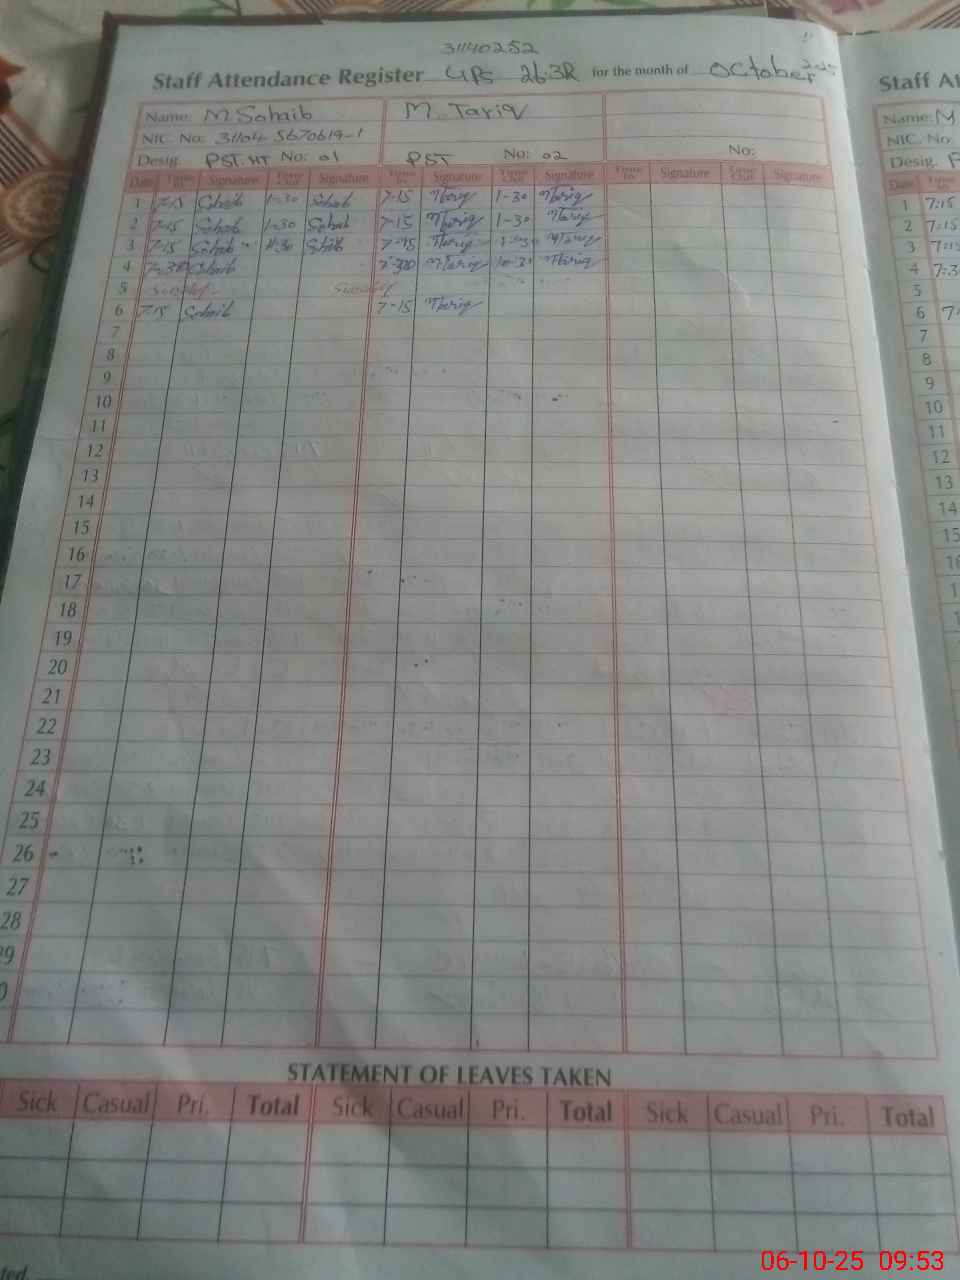 31140252
Staff Attendance Register GPS 26.3R for the month of October 2025
Name: M Sohaib M. Tariq
NIC. No: 31104 5670619-1
Desig. PST. HT No: 01 PST No: 02 No:
Date Time In Signature Time Out Signature Time In Signature Time Out Signature Time In Signature Time Out Signature
1 7-15 Sohaib 1-30 Sohaib 7-15 Tariq 1-30 Tariq
2 7-15 Sohaib 1-30 Sohaib 7-15 Tariq 1-30 Tariq
3 7-15 Sohaib 1-30 Sohaib 7-15 Tariq 1-30 Tariq
4 7-30 Sohaib 7-30 Tariq Tariq
5 Sunday Sunday
6 7-15 Sohaib 7-15 Tariq
7
8
9
10
11
12
13
14
15
16
17
18
19
20
21
22
23
24
25
26
27
28
STATEMENT OF LEAVES TAKEN
Sick Casual Pri. Total Sick Casual Pri. Total Sick Casual Pri. Total
Staff At
Name: M
NIC. No.
Desig. P
Date Time In
1 7:15
2 7:15
3 7:15
4 7:3
5
6 7
7
8
9
10
11
12
13
14
15
06-10-25 09:53